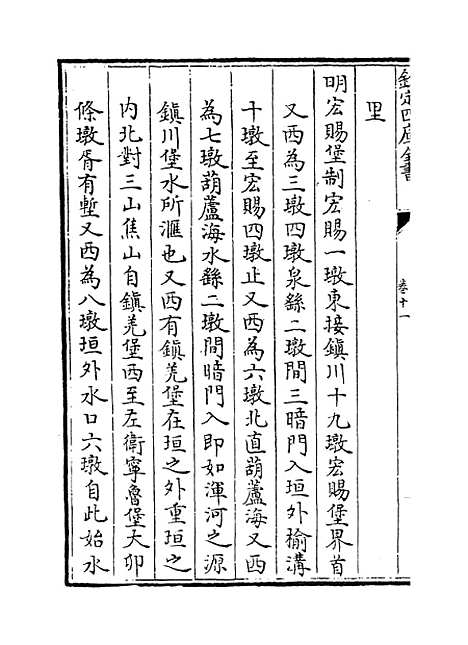 欽定四庫全書
卷十一
里
明宏賜堡制宏賜一墩東接鎮川十九墩宏賜堡界首
又西為三墩四墩泉繇二墩間三暗門入垣外榆溝
十墩至宏賜四墩止又西為六墩北直葫蘆海又西
為七墩葫蘆海水繇二墩間暗門入即如渾河之源
鎮川堡水所滙也又西有鎮羌堡在垣之外重垣之
內北對三山焦山自鎮羌堡西至左衛寧魯堡大卯
條墩胥有塹又西為八墩垣外水口六墩自此始水